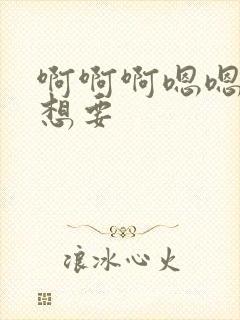 啊啊啊嗯嗯
想要
浪冰心火